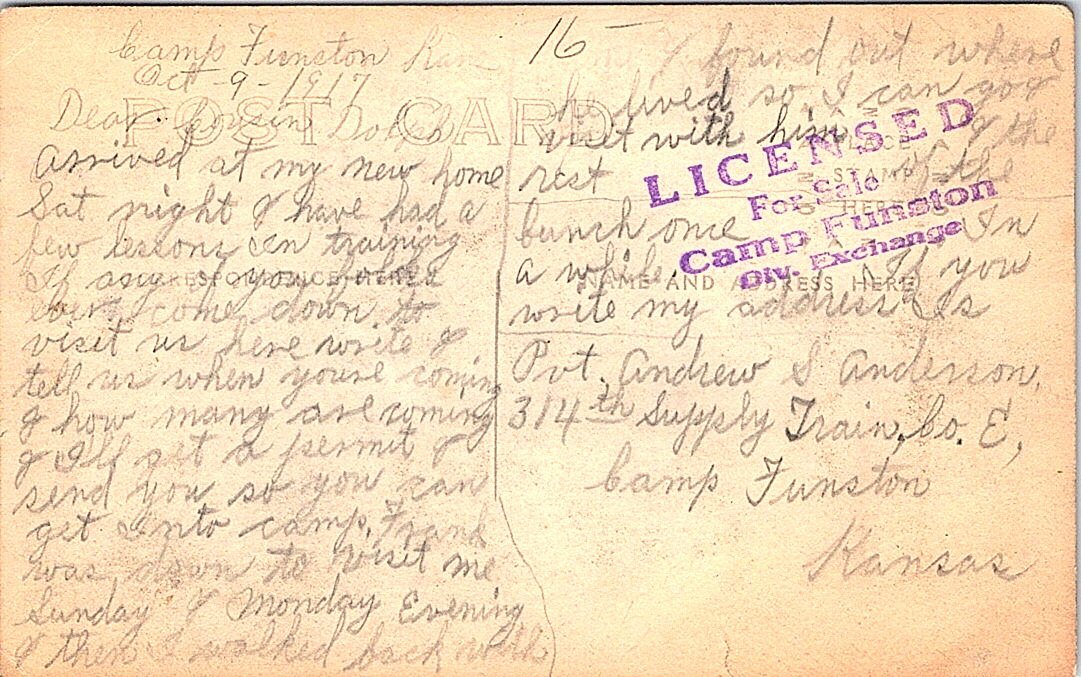 Camp Funston Kan
Oct - 9 - 1917
Dear Cousin
arrived at my new home
Sat night & have had a
few lessons in training
If any of you folks
ever come down to
visit us here write &
tell us when you're coming
& how many are coming
& I'll get a permit &
send you so you can
get Into camp. Frank
was down to visit me
Sunday & Monday Evening
& then I walked back with
16
I found out where
he lived so I can go &
visit with him & the
rest of the
bunch once In
a while. If you
write my address Is
Pvt. Andrew S Anderson,
314th Supply Train, Co. E,
Camp Funston
Kansas
POST CARD
CORRESPONDENCE HERE
NAME AND ADDRESS HERE
PLACE
STAMP
HERE
LICENSED
For Sale
Camp Funston
Div. Exchange